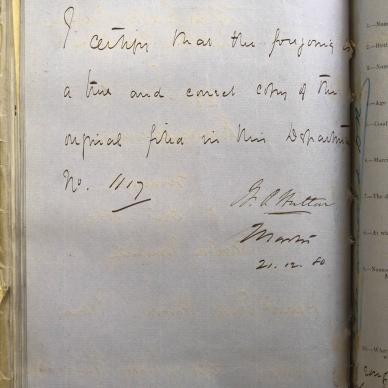 I certify that the foregoing is
a true and correct copy of the
original filed in this Department
No. 1117
Master
21.12.80
1.—Name
2.—
3.—
4.—Age
5.—
6.—
7.—The d
8.—At wh
9.—Names
10.—What